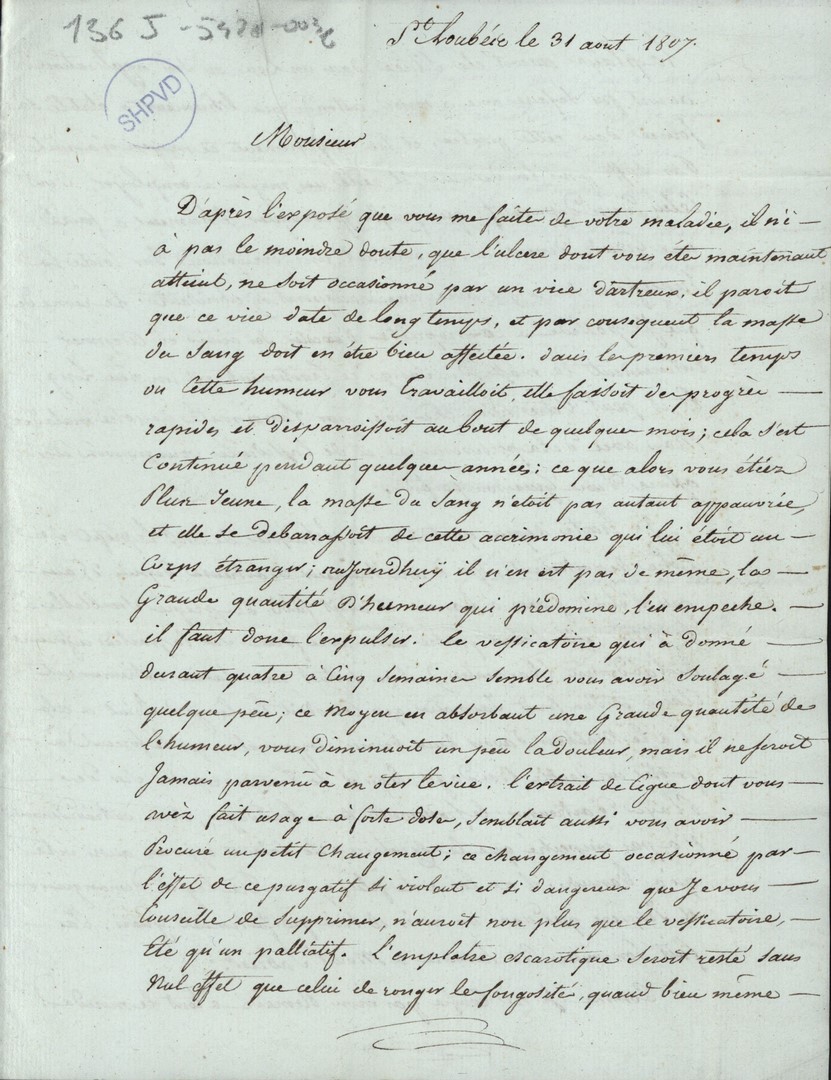 136 J - 5420 - 0036
SHPVD
St Loubés le 31 aout 1807.
Monsieur
D'après l'exposé que vous me faite de votre maladie, il n'i —
à pas le moindre doute, que l'ulcere dont vous éter maintenant
atteint, ne soit occasionné par un vice dartreux, il paroit
que ce vice date de long temps, et par consequent la masse
du sang doit en être bien affectée. dans les premiers temps
ou cette humeur vous travailloit, elle faisoit des progrès —
rapides et disparroissoit au bout de quelques mois; cela s'est
continué pendant quelques années: ce que alors vous étiéz
Plus jeune, la masse du sang n'étoit pas autant appauvrie,
et elle se debarassoit de cette acrimonie qui lui étoit un —
Corps étranger; aujourdhuÿ il n'en est pas de même, la —
Grande quantité D'humeur qui prédomine, l'en empeche. —
il faut donc l'expulser. le vessicatoire qui à donné —
durant quatre à Cinq semaines semble vous avoir soulagé —
quelque péu; ce Moyen en absorbant une Grande quantité de
l'humeur, vous diminuoit un péu la douleur, mais il ne seroit
Jamais parvenû à en oter le vice. l'extrait de Cigue dont vous —
avéz fait usage à forte dose, semblait aussi vous avoir —
Procuré un petit Changement; ce changement occasionné par —
l'éffet de ce purgatif si violent et si dangereux que Je vous —
Conseille de supprimer, n'auroit non plus que le vessicatoire, —
Eté qu'un palliatif. L'emplatre escarotique seroit resté sans
Nul effet que celui de ronger les fongosité, quand bien même —